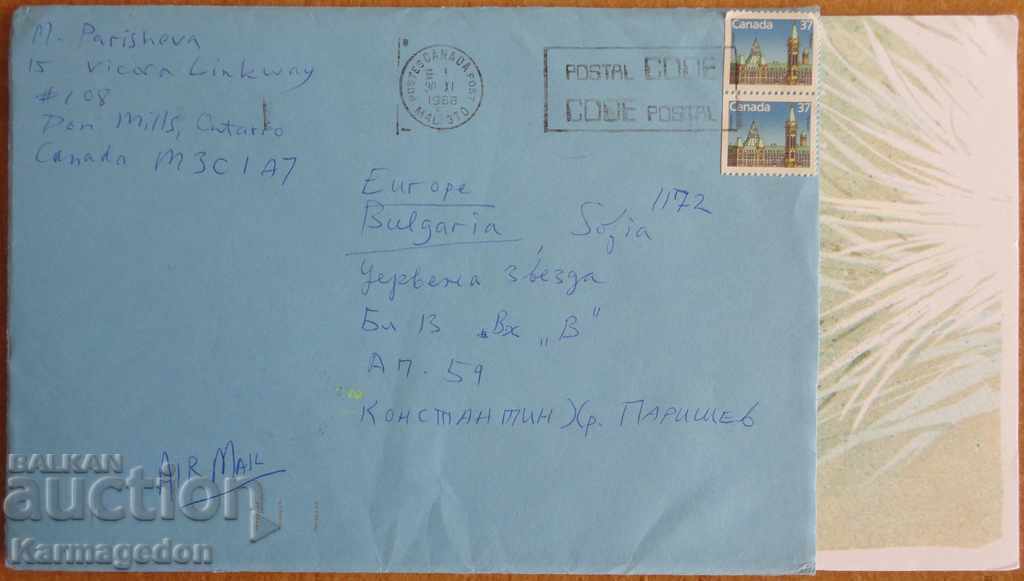 M. Parisheva
15 Vicora Linkway
#108
Don Mills, Ontario
Canada M3C1A7
POSTES CANADA POST
1988
POSTAL CODE
CODE POSTAL
Canada 37
Canada 37
Europe
Bulgaria, Sofia 1172
Червена звезда
Бл 13 Вх „В"
Ап. 59
КОНСТАНТИН Хр. ПАРИШЕВ
AIR MAIL
BALKAN
auction
Karmagedon